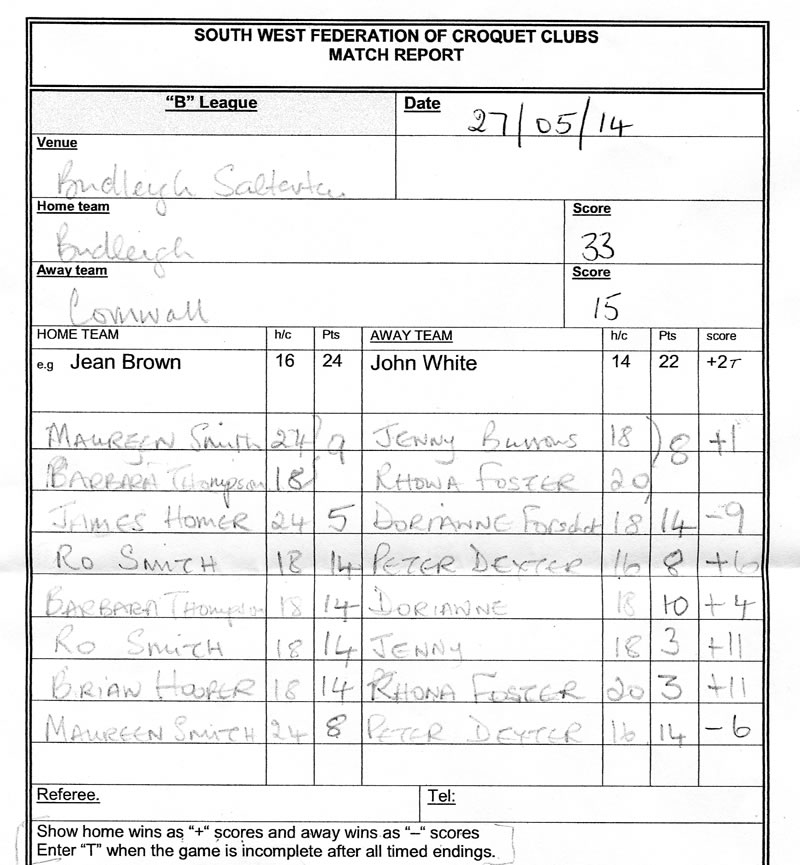 SOUTH WEST FEDERATION OF CROQUET CLUBS
MATCH REPORT
"B" League Date 27/05/14
Venue
Budleigh Salterton
Home team Score
Budleigh 33
Away team Score
Cornwall 15
HOME TEAM h/c Pts AWAY TEAM h/c Pts score
e.g Jean Brown 16 24 John White 14 22 +2T
MAUREEN Smith 24 9 JENNY Burrows 18 8 +1
BARBARA Thompson 18 RHOWA FOSTER 20
JAMES HOMER 24 5 DORIANNE 18 14 -9
RO SMITH 18 14 PETER DEXTER 16 8 +6
BARBARA Thompson 18 14 DORIANNE 18 10 +4
RO SMITH 18 14 JENNY 18 3 +11
BRIAN HOOPER 18 14 RHONA FOSTER 20 3 +11
MAUREEN SMITH 24 8 PETER DEXTER 16 14 -6
Referee. Tel:
Show home wins as "+" scores and away wins as "–" scores
Enter "T" when the game is incomplete after all timed endings.